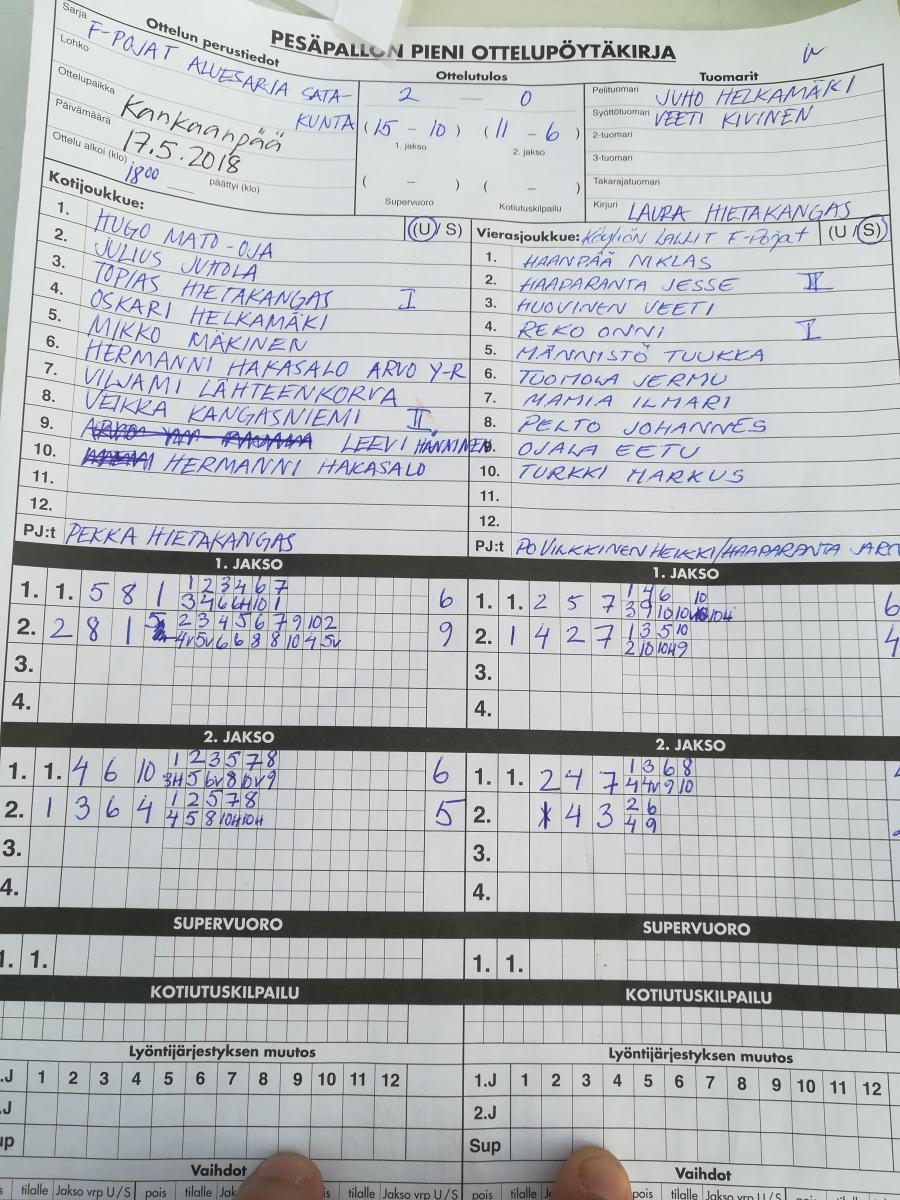 PESÄPALLON PIENI OTTELUPÖYTÄKIRJA
Ottelun perustiedot
Sarja F-POJAT ALUESARJA SATA-
Lohko KUNTA
Ottelupaikka Kankaanpää
Päivämäärä 17.5.2018
Ottelu alkoi (klo) 18 00 päättyi (klo)
Ottelutulos
2 — 0
(15 - 10) (11 - 6)
1. jakso 2. jakso
( - ) ( - )
Supervuoro Kotiutuskilpailu
Tuomarit
Pelituomari JUHO HELKAMÄKI
Syöttötuomari VEETI KIVINEN
2-tuomari
3-tuomari
Takarajatuomari
Kirjuri LAURA HIETAKANGAS
Kotijoukkue: (U/S)
1. HUGO MATO-OJA
2. JULIUS JUHOLA
3. TOPIAS HIETAKANGAS I
4. OSKARI HELKAMÄKI
5. MIKKO MÄKINEN
6. HERMANNI HAKASALO ARVO Y-R
7. VILJAMI LÄHTEENKORVA
8. VEIKKA KANGASNIEMI II
9. LEEVI HÄNNINEN
10. HERMANNI HAKASALO
11.
12.
PJ:t PEKKA HIETAKANGAS
Vierasjoukkue: KÖYLIÖN LALLIT F-Pojat (U/S)
1. HAANPÄÄ NIKLAS
2. HAAPARANTA JESSE
3. HUOVINEN VEETI
4. REKO ONNI
5. MÄNNISTÖ TUUKKA
6. TUOMOLA JERMU
7. MAMIA ILMARI
8. PELTO JOHANNES
9. OJALA EETU
10. TURKKI MARKUS
11.
12.
PJ:t HEIKKI/HAAPARANTA
1. JAKSO
1. 1. 5 8 1 1 2 3 4 6 7 6
2. 2 8 1 5 2 3 4 5 6 7 9 10 2 9
4v 5v 6 6 8 8 10 4 5v
3.
4.
1. JAKSO
1. 1. 2 5 7 1 4 6 10 6
2. 1 4 2 7 1 3 5 10 4
2 10 10H 9
3.
4.
2. JAKSO
1. 1. 4 6 10 1 2 3 5 7 8 6
3H 5 6v 8 6v 9
2. 1 3 6 4 1 2 5 7 8 5
4 5 8 10H 10H
3.
4.
2. JAKSO
1. 1. 2 4 7 1 3 6 8
4 4v 9 10
2. 4 3 2 6
4 9
3.
4.
SUPERVUORO
1. 1.
SUPERVUORO
1. 1.
KOTIUTUSKILPAILU
KOTIUTUSKILPAILU
Lyöntijärjestyksen muutos
.J 1 2 3 4 5 6 7 8 9 10 11 12
.J
up
Lyöntijärjestyksen muutos
1.J 1 2 3 4 5 6 7 8 9 10 11 12
2.J
Sup
Vaihdot
tilalle Jakso vrp U/S pois tilalle
Vaihdot
pois tilalle pois tilalle Jakso vrp U/S